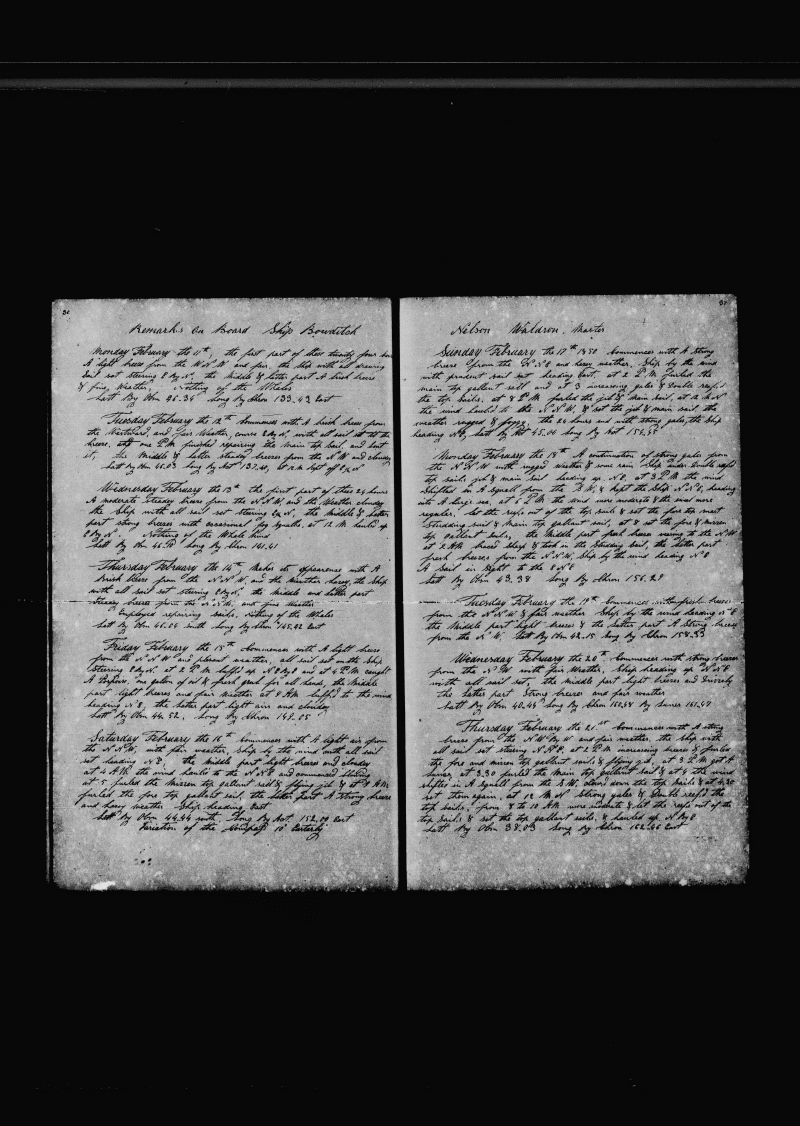 30
Remarks On Board Ship Bowditch
Monday February the 11th, the first part of these twenty four hours
A light breeze from the W N W and fair, the ship with all drawing
sail set steering E By N, the middle & latter part A brisk breeze
& fine weather, Nothing of the Whales
Latt By Obn 46.34 Long By Chron 133.43 East
Tuesday February the 12th Commences with A brisk breeze from
the Westward, and fair Weather, course E By N, with all sail set to the
breeze, at one P.M finished repairing the main top sail and bent
it, the Middle & latter steady breezes from the N W and cloudy
Latt By Obn 46.03 Long By Act 137.40, at 12 M kept off E by N
Wednesday February the 13th the first part of these 24 hours
A moderate steady breeze from the N N W, and the Weather cloudy
the Ship with all sail set steering E by N, the middle & latter
part strong breezes with occasional fog squalls, at 12 M hauled up
E By N. Nothing of the Whale kind
Latt By Obn 46. Long By Chron 141.41
Thursday February the 14th, Makes its appearance with A
brisk breeze from the N N W, and the Weather hazy, the Ship
with all sail set steering E By N, the middle and latter part
steady breezes from the N N W, and fine Weather
Employed repairing sails, Nothing of the Whales
Latt By Obn 46.04 south Long By Chron 145.42 East
Friday February the 15th Commences with A light breeze
from the N N W and pleasant weather, all sail set on the Ship
Steering E By N. at 2 P.M luffed up N E By E and at 4 P.M caught
A Porpoise, one gallon of oil & fresh grub for all hands, the Middle
part light breezes and fair Weather at 8 A.M. luffed to the wind
heading N E, the latter part light airs and cloudy
Latt By Obn 44.52, Long By Chron 149.05
Saturday February the 16th Commences with A light air from
the N N W, with fair weather, ship by the wind with all sail
set heading N E, the middle part light breezes and cloudy
at 4 A.M. the wind hauls to the N N E and commenced blowing
at 5 furled the Mizzen top gallant sail & flying jib & at 7 A.M.
furled the fore top gallant sail, the latter part A strong breeze
and hazy weather Ship heading East
Latt By Obn 44.44 south, Long By Act. 152.09 East
Variation of the Compass 10° Easterly
31
Nelson Waldron, Master
Sunday February the 17th 1850 Commences with A strong
breeze from the N N E and hazy weather, Ship by the wind
with prudent sail set heading East. at 2 P.M furled the
main top gallant sail and at 3 increasing gales & double reef'd
the top sails, at 8 P.M furled the jib & main sail, at 12 M N
the wind hauled to the N N W, & set the jib & main sail the
weather rugged & foggy. the 24 hours end with strong gales, the Ship
heading N E, Latt By Act 45.04 Long By Act 155.55
Monday February the 18th A continuation of strong gales from
the N N W with rugged weather & some rain Ship under double reef'd
top sails jib & main sail heading up N E, at 3 P.M the wind
shifted in A squall from the S W, & kept the Ship N N E, heading
into A large sea, at 6 P.M the wind more moderate & the wind more
regular. let the reefs out of the top sails & set the fore top mast
studding sail & Main top gallant sail, at 8 set the fore & mizzen
top gallant sails, the Middle part fresh breezes veering to the N.W
at 2 A.M. braced sharp & took in the studding sail, the latter part
fresh breezes from the N N W, Ship by the wind heading N E
A sail in sight to the E N E
Latt By Obn 43.38 Long By Chron 156.29
Tuesday February the 19th Commences with fresh breeze
from the N N W & fair weather Ship by the wind heading N E
the Middle part light breezes & the latter part A strong breeze
from the N W. Latt By Obn 42.15 Long By Chron 158.33
Wednesday February the 20th Commences with strong breezes
from the N W with fair Weather, Ship heading up N N E
with all sail set, the middle part light breezes and
the latter part Strong breezes and fair weather
Latt By Obn 40.45 Long By Chron 160.54 By Luner 161.47
Thursday February the 21st Commences with A strong
breeze from the N W By W and fair weather, the Ship with
all sail set steering N N E, at 2 P.M increasing breeze & furled
the fore and mizen top gallant sails & flying jib, at 3 P.M got A
Luner, at 3.30 furled the Main top gallant sail & at 4 the wind
shifted in A squall from the S.W, clewed down the top sails & at 4.30
set them again, at 12 M N Strong gales & double reef'd the
top sails, from 8 to 10 A.M. more moderate & let the reefs out of the
top sails & set the top gallant sails, & hauled up N By E
Latt By Obn 38.03 Long By Chron 162.46 East